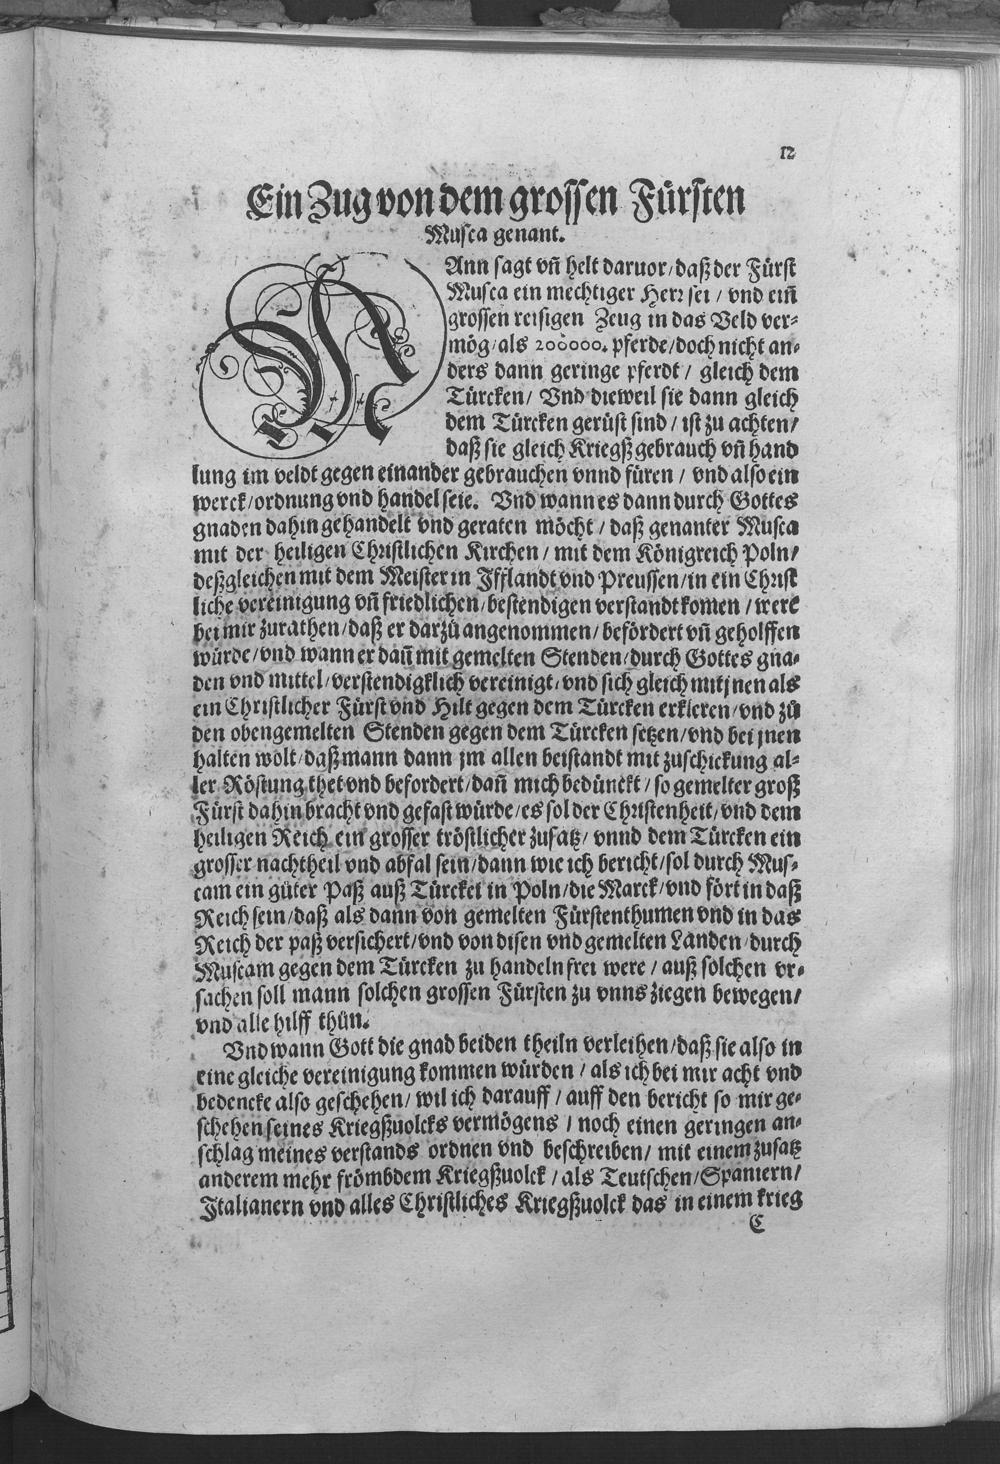 12
Ein Zug von dem grossen Fürsten
Musca genant.
MAnn sagt vñ helt daruor/ daß der Fürst
Musca ein mechtiger Herr sei / vnd eiñ
grossen reisigen Zeug in das Veld ver-
mög/ als 200000. pferde/ doch nicht an-
ders dann geringe pferdt / gleich dem
Türcken/ Vnd dieweil sie dann gleich
dem Türcken gerüst sind / ist zu achten/
daß sie gleich Kriegßgebrauch vñ hand
lung im veldt gegen einander gebrauchen vnnd füren / vnd also ein
werck/ ordnung vnd handel seie. Vnd wann es dann durch Gottes
gnaden dahin gehandelt vnd geraten möcht / daß genanter Musca
mit der heiligen Christlichen Kirchen / mit dem Königreich Poln/
deßgleichen mit dem Meister in Jfflandt vnd Preussen/ in ein Christ
liche vereinigung vñ friedlichen/ bestendigen verstandt komen / were
bei mir zurathen/ daß er darzů angenommen/ befördert vñ geholffen
würde/ vnd wann er dañ mit gemelten Stenden/ durch Gottes gna-
den vnd mittel/ verstendigklich vereinigt/ vnd sich gleich mit jnen als
ein Christlicher Fürst vnd Hilt gegen dem Türcken erkleren/ vnd zů
den obengemelten Stenden gegen dem Türcken setzen/ vnd bei jnen
halten wolt/ daß mann dann jm allen beistandt mit zuschickung al-
ler Röstung thet vnd befordert/ dañ mich bedünckt / so gemelter groß
Fürst dahin bracht vnd gefast würde/ es sol der Christenheit/ vnd dem
heiligen Reich ein grosser tröstlicher zusatz/ vnnd dem Türcken ein
grosser nachtheil vnd abfal sein/ dann wie ich bericht/ sol durch Mus-
cam ein gůter Paß auß Türckei in Poln/ die Marck/ vnd fört in daß
Reich sein/ daß als dann von gemelten Fürstenthumen vnd in das
Reich der paß versichert/ vnd von disen vnd gemelten Landen/ durch
Muscam gegen dem Türcken zu handeln frei were / auß solchen vr-
sachen soll mann solchen grossen Fürsten zu vnns ziegen bewegen/
vnd alle hilff thůn.
Vnd wann Gott die gnad beiden theiln verleihen/ daß sie also in
eine gleiche vereinigung kommen würden / als ich bei mir acht vnd
bedencke also geschehen/ wil ich darauff / auff den bericht so mir ge-
schehen seines Kriegßuolcks vermögens / noch einen geringen an-
schlag meines verstands ordnen vnd beschreiben/ mit einem zusatz
anderem mehr frömbdem Kriegßuolck / als Teutschen/ Spaniern/
Jtalianern vnd alles Christliches Kriegßuolck das in einem krieg
C